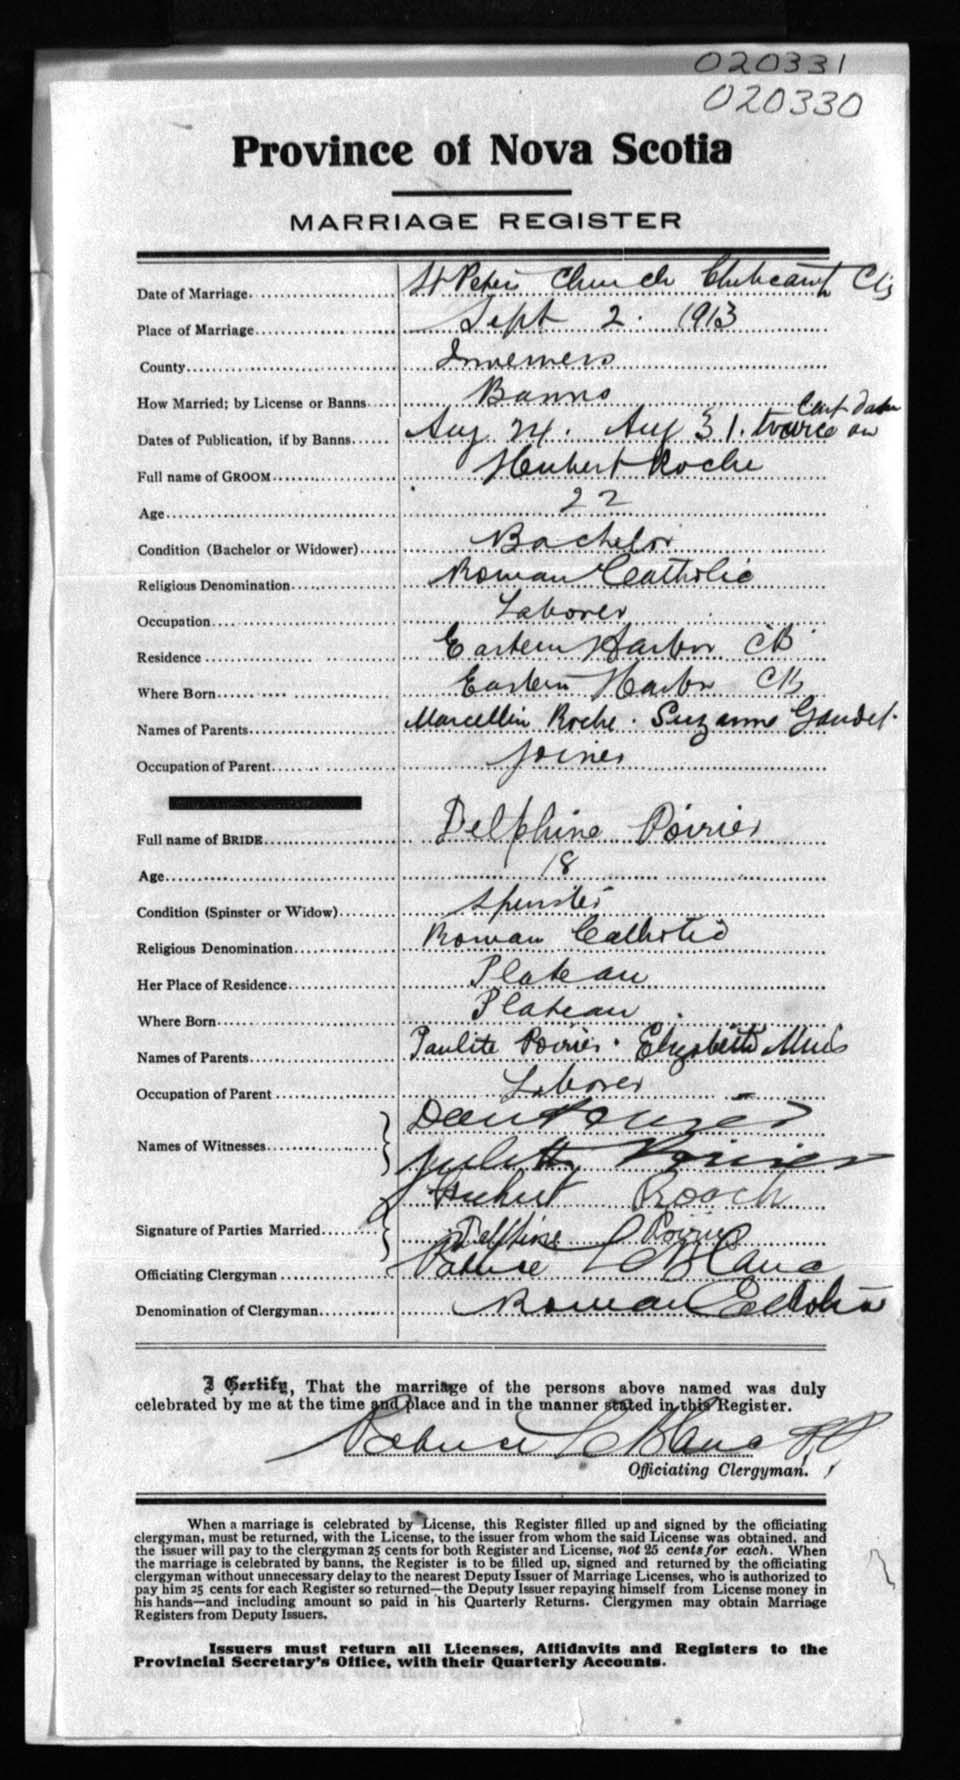 020331
020330
Province of Nova Scotia
MARRIAGE REGISTER
Date of Marriage St Peters Church Chéticamp
Place of Marriage Sept 2. 1913
County Inverness
How Married; by License or Banns Banns
Dates of Publication, if by Banns Aug 24. Aug 31. twice on last date
Full name of GROOM Hubert Roche
Age 22
Condition (Bachelor or Widower) Bachelor
Religious Denomination Roman Catholic
Occupation Laborer
Residence Eastern Harbor CB
Where Born Eastern Harbor CB
Names of Parents Marcellin Roche. Suzanne Gaudet.
Occupation of Parent Joiner
Full name of BRIDE Delphine Poirier
Age 18
Condition (Spinster or Widow) Spinster
Religious Denomination Roman Catholic
Her Place of Residence Plateau
Where Born Plateau.
Names of Parents Paulite Poirier. Elizabeth Muis
Occupation of Parent Laborer
Names of Witnesses
Poirier
Hubert Roach
Signature of Parties Married Delphine Poirier
Officiating Clergyman LeBlanc
Denomination of Clergyman Roman Catholic
I Certify, That the marriage of the persons above named was duly
celebrated by me at the time and place and in the manner stated in this Register.
LeBlanc PP
Officiating Clergyman.
When a marriage is celebrated by License, this Register filled up and signed by the officiating
clergyman, must be returned, with the License, to the issuer from whom the said License was obtained, and
the issuer will pay to the clergyman 25 cents for both Register and License, not 25 cents for each. When
the marriage is celebrated by banns, the Register is to be filled up, signed and returned by the officiating
clergyman without unnecessary delay to the nearest Deputy Issuer of Marriage Licenses, who is authorized to
pay him 25 cents for each Register so returned—the Deputy Issuer repaying himself from License money in
his hands—and including amount so paid in his Quarterly Returns. Clergymen may obtain Marriage
Registers from Deputy Issuers.
Issuers must return all Licenses, Affidavits and Registers to the
Provincial Secretary's Office, with their Quarterly Accounts.